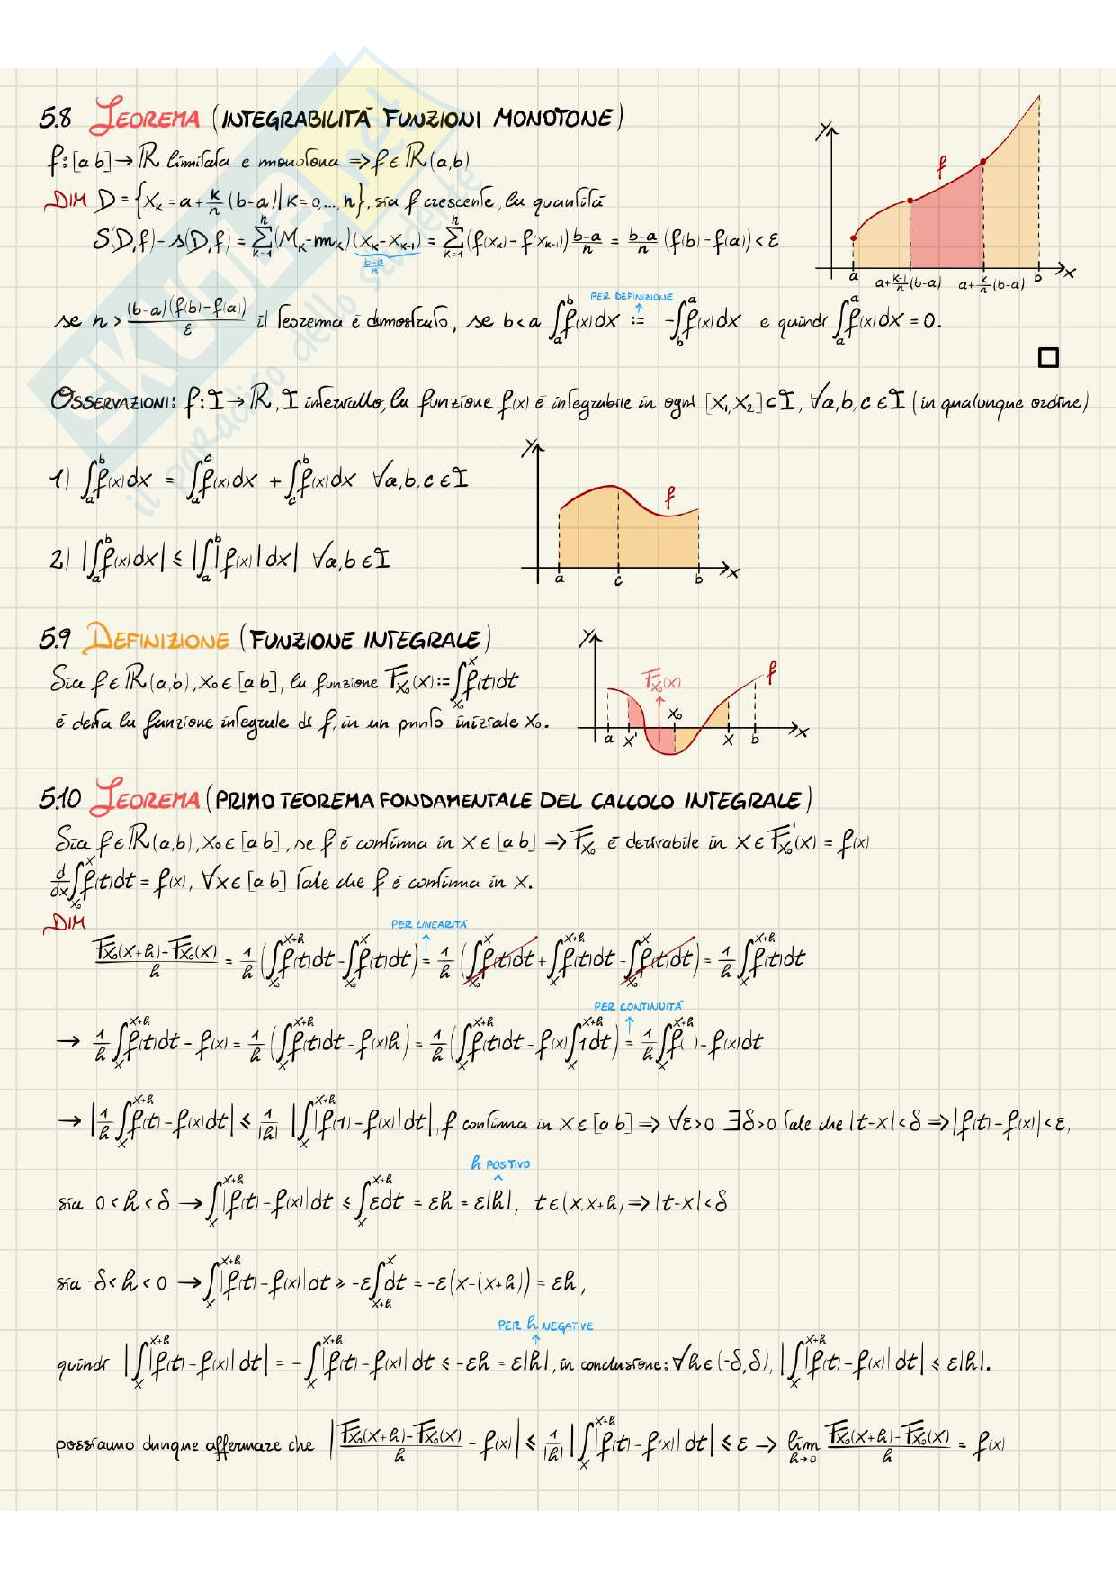 5.8 TEOREMA (INTEGRABILITÀ FUNZIONI MONOTONE)
f:[a b]→ℝ limitata e monotona ⇒ f∈ℝ(a,b)
DIM D={x_k=a+k/n(b-a)| k=0,...,n}, sia f crescente, la quantità
S(D,f)-s(D,f) = Σ_{k=1}^{n}(M_k-m_k)(x_k-x_{k-1}) = Σ_{k=1}^{n}(f(x_k)-f(x_{k-1})) b-a/n = b-a/n (f(b)-f(a)) < ε
b-a/n
y f a a+k-1/n(b-a) a+k/n(b-a) b x
PER DEFINIZIONE
se n > (b-a)(f(b)-f(a))/ε il teorema è dimostrato, se b<a ∫_a^b f(x)dx := -∫_b^a f(x)dx e quindi ∫_a^a f(x)dx = 0.
OSSERVAZIONI: f:I→ℝ, I intervallo, la funzione f(x) è integrabile in ogni [x₁,x₂]⊂I, ∀a,b,c∈I (in qualunque ordine)
1) ∫_a^b f(x)dx = ∫_a^c f(x)dx + ∫_c^b f(x)dx ∀a,b,c∈I
y f a c b x
2) |∫_a^b f(x)dx| ≤ |∫_a^b |f(x)|dx| ∀a,b∈I
5.9 DEFINIZIONE (FUNZIONE INTEGRALE)
Sia f∈ℝ(a,b), x₀∈[a b], la funzione F_{x₀}(x):=∫_{x₀}^x f(t)dt
è detta la funzione integrale di f, in un punto iniziale x₀.
y F_{x₀}(x) f a x' x₀ x b x
5.10 TEOREMA (PRIMO TEOREMA FONDAMENTALE DEL CALCOLO INTEGRALE)
Sia f∈ℝ(a,b), x₀∈[a b], se f è continua in x∈[a b] → F_{x₀} è derivabile in x e F'_{x₀}(x) = f(x)
d/dx ∫_{x₀}^x f(t)dt = f(x), ∀x∈[a b] tale che f è continua in x.
DIM
PER LINEARITÀ
F_{x₀}(x+h)-F_{x₀}(x)/h = 1/h (∫_{x₀}^{x+h} f(t)dt - ∫_{x₀}^x f(t)dt) = 1/h (∫_{x₀}^x f(t)dt + ∫_x^{x+h} f(t)dt - ∫_{x₀}^x f(t)dt) = 1/h ∫_x^{x+h} f(t)dt
PER CONTINUITÀ
→ 1/h ∫_x^{x+h} f(t)dt - f(x) = 1/h (∫_x^{x+h} f(t)dt - f(x)h) = 1/h (∫_x^{x+h} f(t)dt - f(x)∫_x^{x+h} 1dt) = 1/h ∫_x^{x+h} f( ) - f(x)dt
→ |1/h ∫_x^{x+h} f(t) - f(x)dt| ≤ 1/|h| |∫_x^{x+h} |f(t) - f(x)|dt|, f continua in x∈[a b] ⇒ ∀ε>0 ∃δ>0 tale che |t-x|<δ ⇒ |f(t)-f(x)|<ε,
h POSTIVO
sia 0<h<δ → ∫_x^{x+h} |f(t)-f(x)|dt ≤ ∫_x^{x+h} εdt = εh = ε|h|, t∈(x,x+h) ⇒ |t-x|<δ
sia -δ<h<0 → ∫_x^{x+h} |f(t)-f(x)|dt ≥ -ε∫_{x+h}^x dt = -ε(x-(x+h)) = εh,
PER h NEGATIVE
quindi |∫_x^{x+h} |f(t)-f(x)|dt| = -∫_x^{x+h} |f(t)-f(x)|dt ≤ -εh = ε|h|, in conclusione: ∀h∈(-δ,δ), |∫_x^{x+h} |f(t)-f(x)|dt| ≤ ε|h|.
possiamo dunque affermare che |F_{x₀}(x+h)-F_{x₀}(x)/h - f(x)| ≤ 1/|h| |∫_x^{x+h} |f(t)-f(x)|dt| ≤ ε → lim_{h→0} F_{x₀}(x+h)-F_{x₀}(x)/h = f(x)
SKUOLA.net
il paradiso dello studente